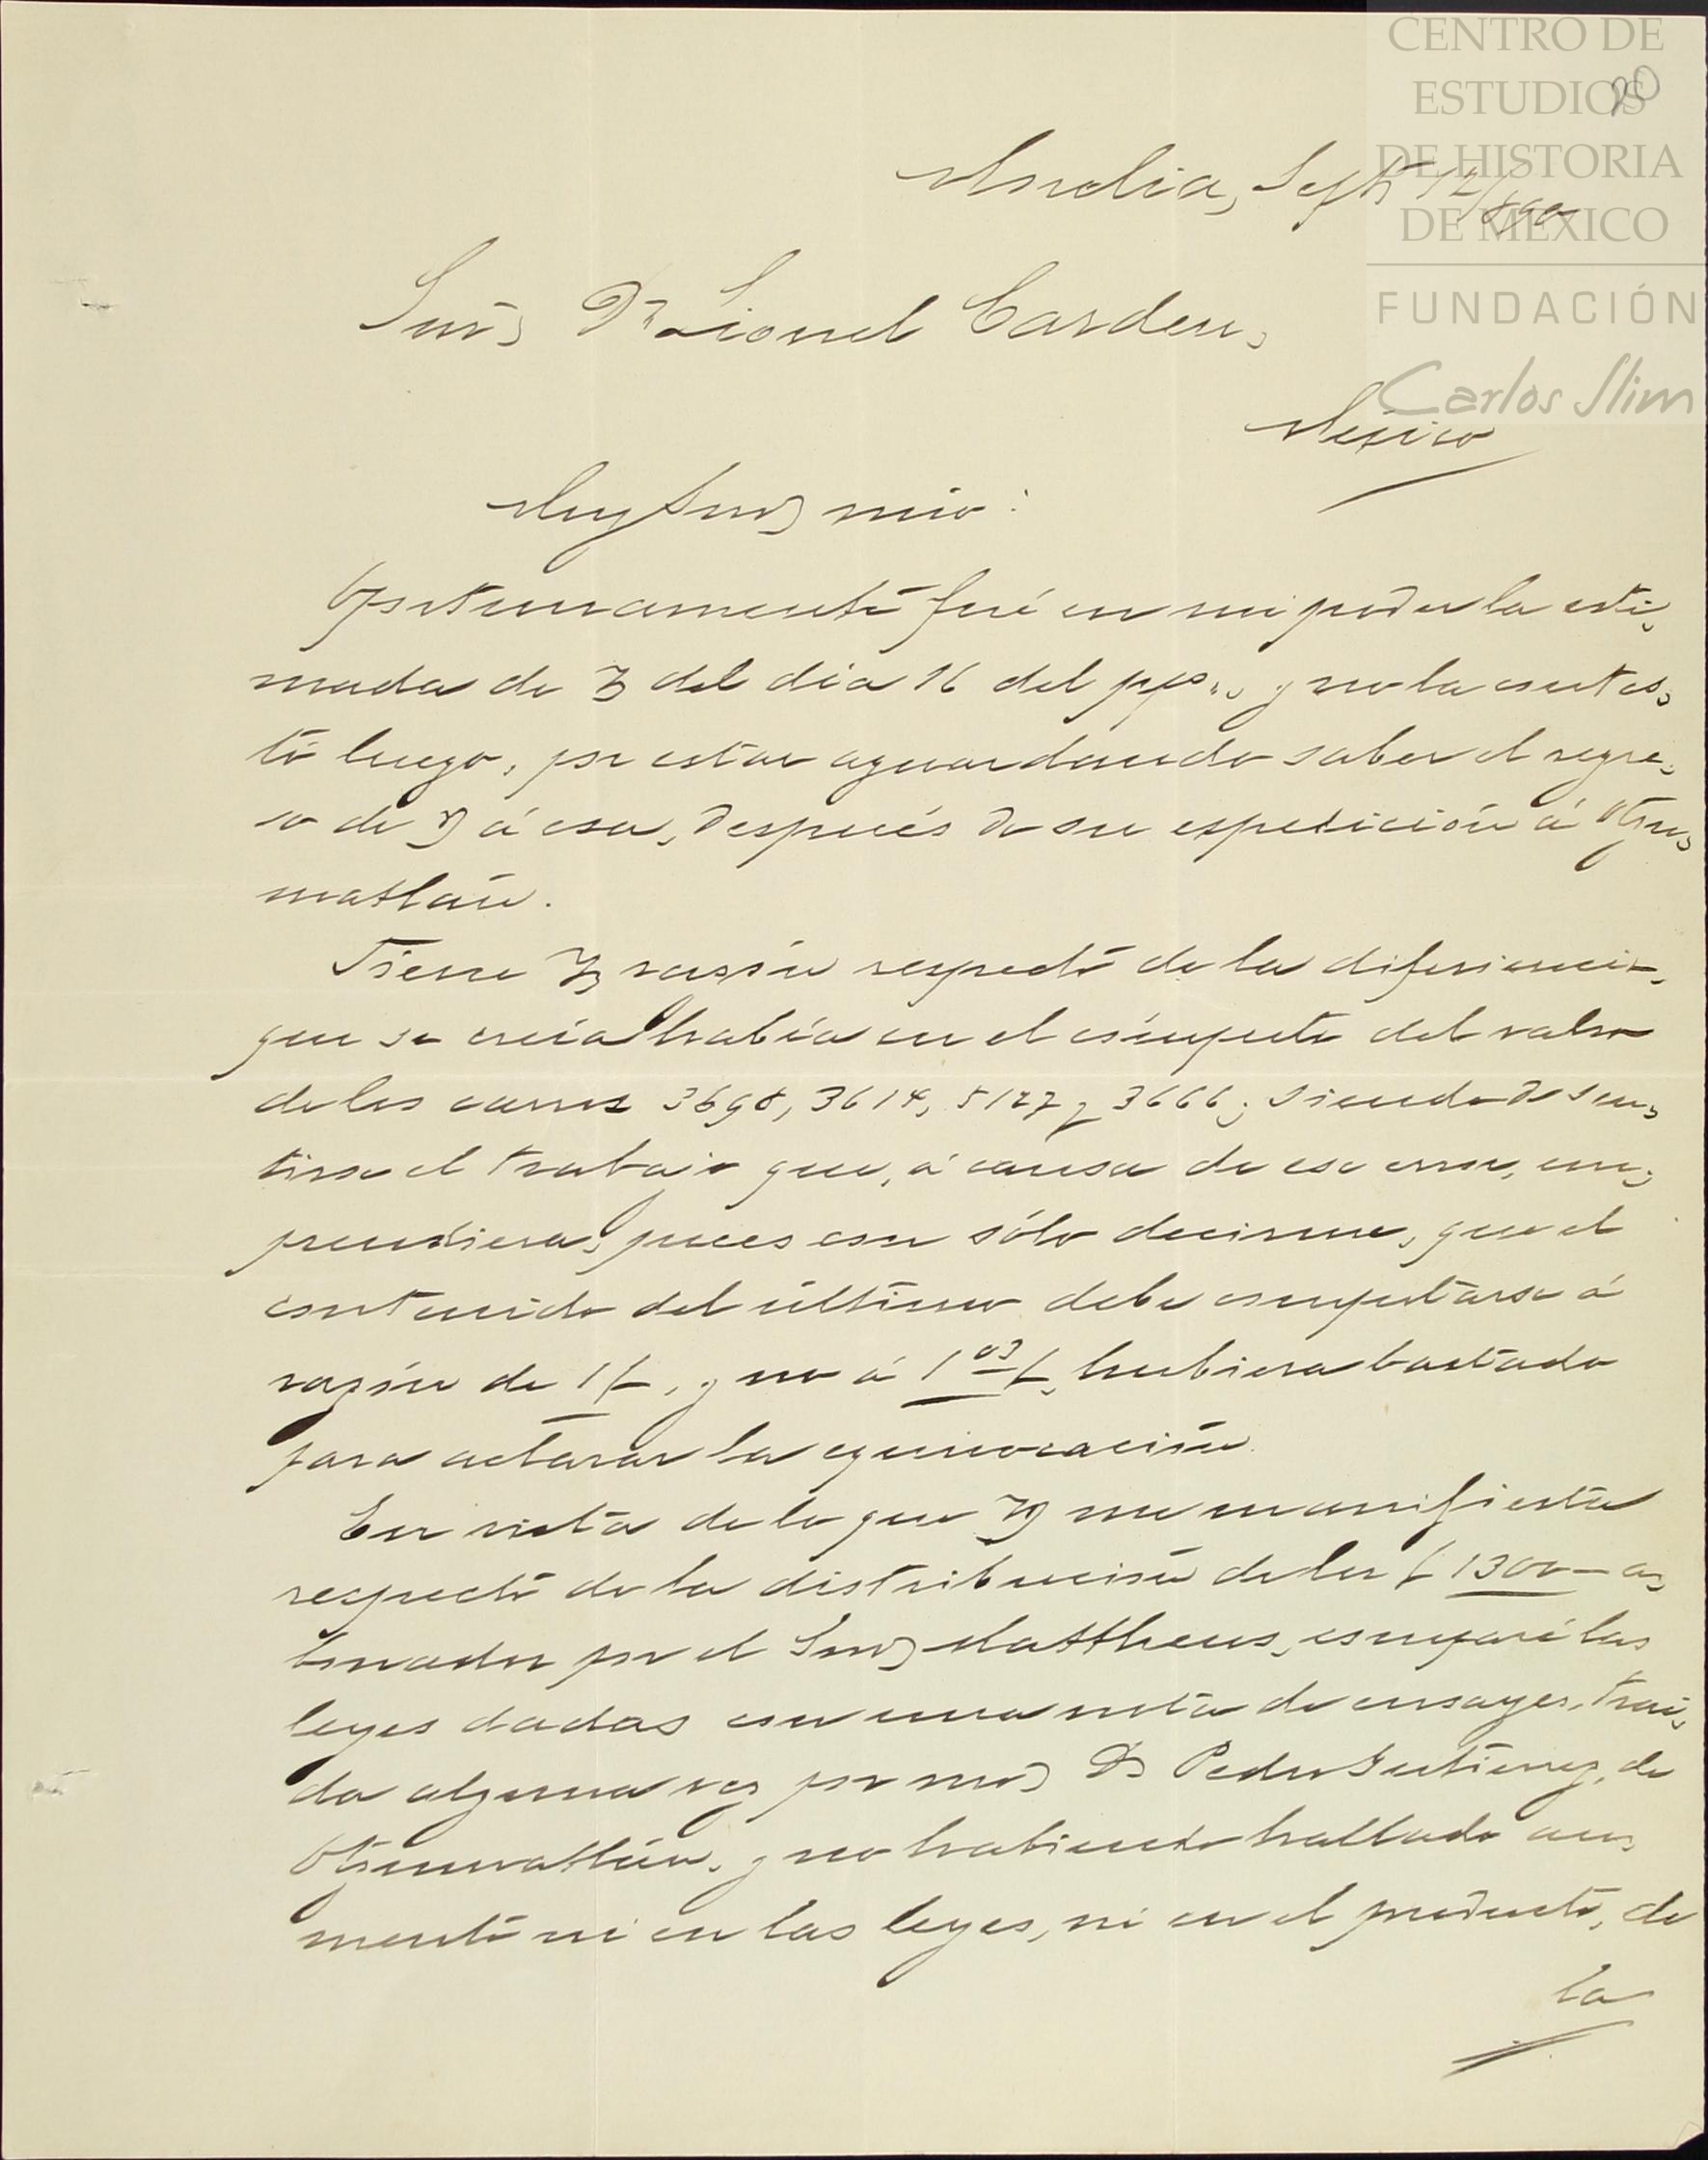 CENTRO DE
ESTUDIOS
DE HISTORIA
DE MÉXICO
FUNDACIÓN
Carlos Slim
20
Morelia, Sept 12/890
Señor Dn Lionel Carden,
México
Muy Señor mio:
Oportunamente fué en mi poder la esti-
mada de V del día 16 del ppo., y no la contes-
té luego, por estar aguardando saber el regre-
so de V á esa, después de su expedición á Otzu-
matlán.
Tiene V razón respecto de la diferiencia
que se creía había en el cómputo del valor
de los carros 3698, 3614, 5127 y 3666; siendo de sen-
tirse el trabajo que, á causa de ese error, em-
prendiera, pues con sólo decirme, que el
contenido del último debe computarse á
razón de 1$, y no á 1 03 $, hubiera bastado
para aclarar la equivocación.
En vista de lo que V me manifiesta
respecto de la distribución de los $1300— a-
bonados por el Señor Matthews, comparé las
leyes dadas con una nota de ensayes, traí-
da alguna vez por Dn Pedro Gutierrez, de
Otzumatlán, y no habiendo hallado au-
mento ni en las leyes, ni en el producto, de
la